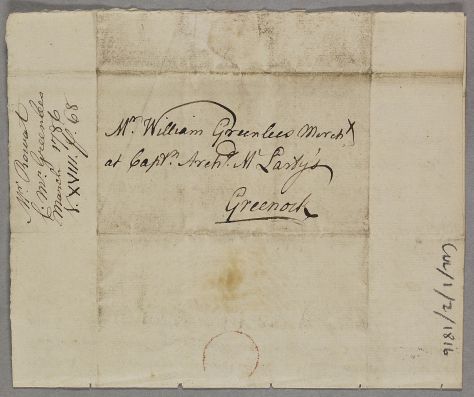 Mr. William Greenlees Mercht
at Captn. Archd. Mc Larty's
Greenock
Mr Rowat
to Mr. Greenlees
March 1786
V. XVIII. p. 68
CW/1/2/1816